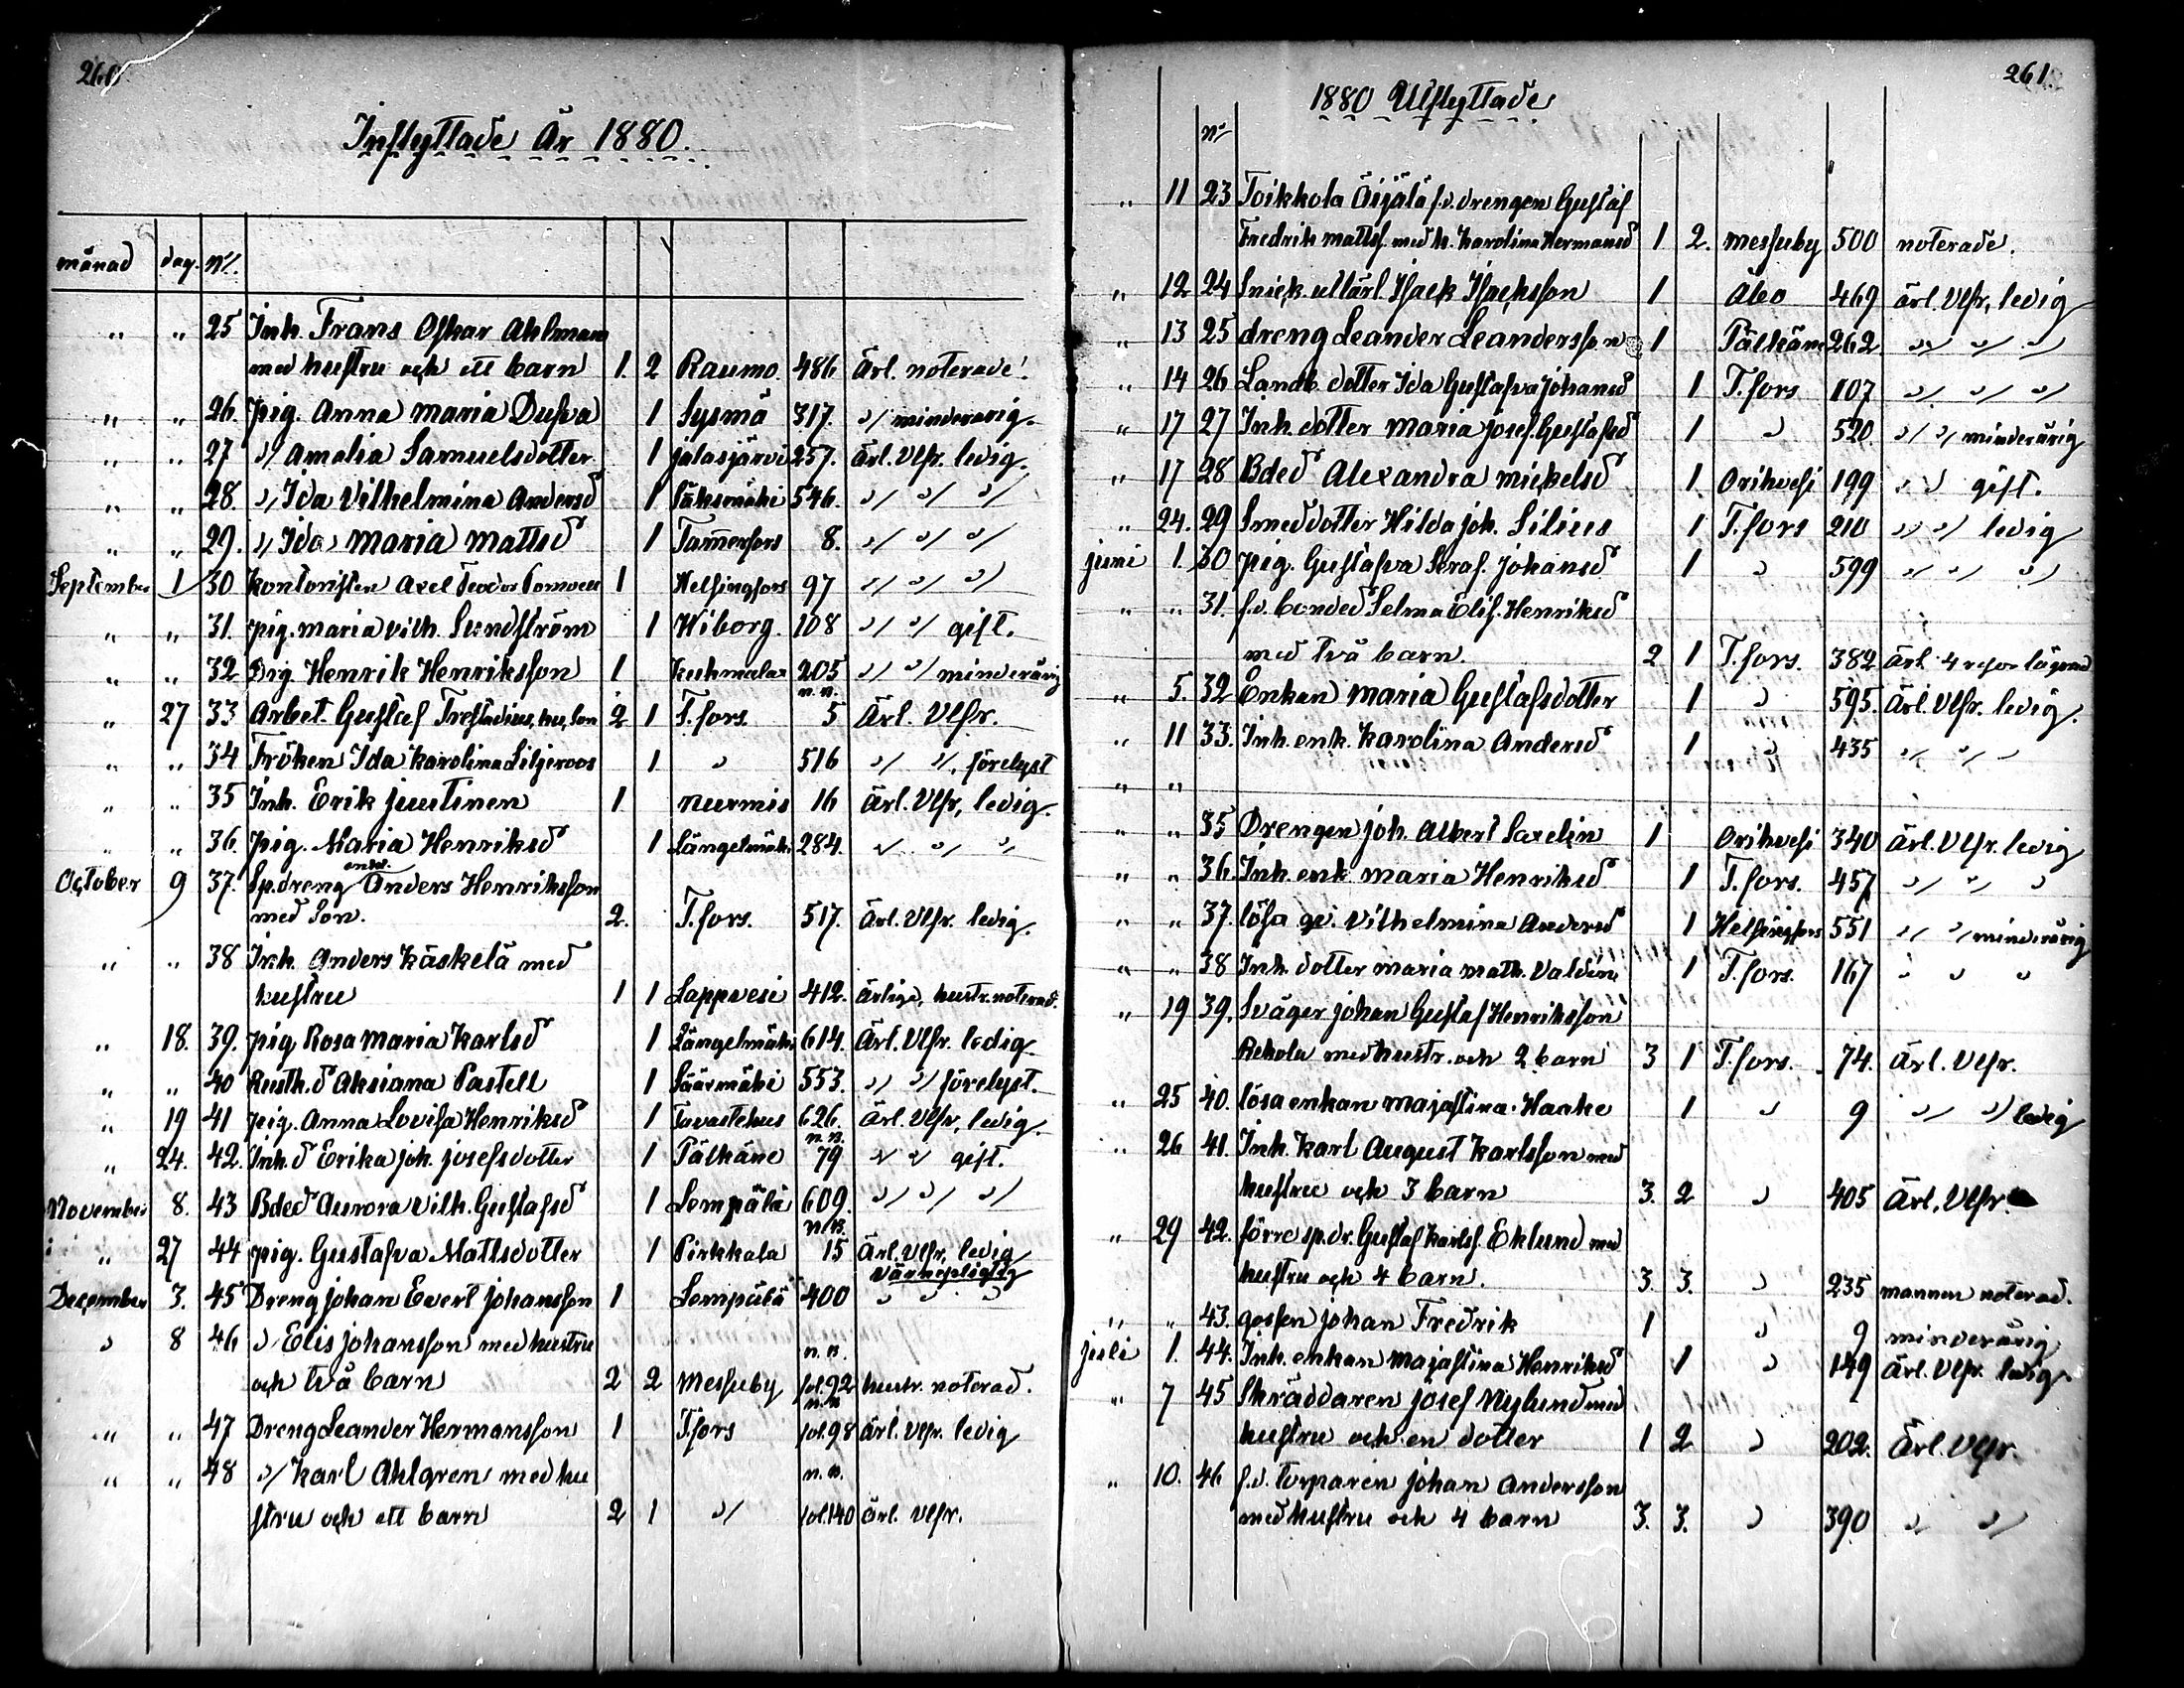 260
Inflyttade År 1880.
månad dag. No.
" " 25 Inh. Frans Oskar Ahlman
med hustru och ett barn 1. 2 Raumo. 486 Ärl. noterade.
" " 26. pig. Anna Maria Dufva 1 Sysmä 317. " minderårig.
" " 27 " Amalia Samuelsdotter. 1 Jalasjärvi 257. Ärl. Vlfr. ledig.
" " 28. " Ida Vilhelmina Andersd 1 Sääksmäki 546. " " "
" " 29. " Ida Maria Mattsd 1 Tammerfors 8. " " "
September 1 30 Kontoristen Axel Teodor 1 Helsingfors 97 " " "
" " 31. pig. Maria Vilh. Sundström 1 Wiborg. 108 " " gift.
" " 32 Drg Henrik Henriksson 1 Kuhmalax 205 " " minderårig
" 27 33 Arbet. Gustaf Trefladius, hu, son 2 1 T.fors. n.B. 5 Ärl. Vlfr.
" " 34 Fröken Ida Karolina Liljeroos 1 " 516 " ", förelyst
" " 35 Inh. Erik Juutinen 1 Nurmis 16 Ärl. Vlfr, ledig.
" " 36. pig. Maria Henriksd 1 Längelmäki 284. " " "
October 9 37. Sp.dreng enkl. Anders Henriksson
med son. 2. T.fors. 517. Ärl. Vlfr. ledig.
" " 38 Inh. Anders Käskelä med
hustru 1 1 Lappvesi 412. Ärliga, hustr. noterad.
" 18. 39. pig Rosa Maria Karlsd 1 Längelmäki 614. Ärl. Vlfr. ledig.
" " 40 Rusth.d Aksiana Pastell 1 Säärmäki 553. " " förelyst.
" 19 41 pig. Anna Lovisa Henriksd 1 Tavastehus 626. Ärl. Vlfr, ledig.
" 24. 42. Inh.d Erika Joh. Josefsdotter 1 Pälkäne n.B. 79 " " gift.
November 8. 43 Bded Aurora Vilh. Gustafsd 1 Lempälä 609. " " "
" 27 44 pig. Gustafva Mattsdotter 1 Pirkkala n.B. 15 Ärl. Vlfr, ledig
värnepligtig
December 3. 45 Dreng Johan Evert Johansson 1 Lempälä 400 " " "
" 8 46 " Elis Johansson med hustru n.B.
och två barn 2 2 Messuby fol. 92 hustr. noterad.
" " 47 Dreng Leander Hermansson 1 T.fors n.B. fol. 98 Ärl. Vlfr. ledig
" " 48 " Karl Ahlgren med hu n.B.
stru och ett barn 2 1 " fol. 140 Ärl. Vlfr.
261
1880 Utflyttade
No
" 11 23 Toikkola Äijälä f.d. drengen Gustaf
Fredrik Mattss. med h. Karolina Hermansd 1 2. Messuby 500 noterade.
" 12 24 Snick. utlärl. Isack Isacksson 1 Åbo 469 ärl. Vlfr, ledig
" 13 25 dreng Leander Leandersson 1 Pälkäne 262. " " "
" 14 26 Landb. dotter Ida Gustafva Johansd 1 T.fors 107 " " "
" 17 27 Inh. dotter Maria Josef. Gustafsd 1 " 520 " " minderårig
" 17 28 Bded Alexandra Mickelsd 1. Orihvesi 199 " " gift.
" 24. 29 Smeddotter Hilda Joh. Silius 1 T.fors 210 " " ledig
Juni 1. 30 pig. Gustafva Seraf. Johansd 1 " 599 " " "
" " 31. f.d. bonded Selma Elis. Henriksd
med två barn. 2 1 T.fors. 382 Ärl.
" 5. 32 Enkan Maria Gustafsdotter 1 " 595. Ärl. Vlfr. ledig.
" 11 33. Inh. enk. Karolina Andersd 1 " 435 " " "
" "
" " 35 Drengen Joh. Albert Saxelin 1 Orihvesi 340 Ärl. Vlfr. ledig
" " 36. Inh. enk. Maria Henriksd 1 T.fors. 457 " " "
" " 37. lösa qv. Vilhelmina Andersd 1 Helsingfors 551 " " minderårig
" " 38 Inh. dotter Maria Math. Valdén 1 T.fors. 167 " " "
" 19 39. Sväger Johan Gustaf Henriksson
Rekola med hustr. och 2 barn 3 1 T.fors. 74. Ärl. Vlfr.
" 25 40. lösa enkan Majastina Haake 1 " 9 " " ledig
" 26 41. Inh. Karl August Karlsson med
hustru och 3 barn 3. 2 " 405 Ärl. Vlfr.
" 29 42. förre sp.dr. Gustaf Karlss. Eklund med
hustru och 4 barn. 3. 3. " 235 mannen noterad.
" " 43. gossen Johan Fredrik 1 " 9 minderårig
Juli 1. 44. Inh. enkan Majastina Henriksd 1 " 149 Ärl. Vlfr. ledig.
" 7 45 Skräddaren Josef Nylund med
hustru och en dotter 1 2 " 202. Ärl. Vlfr.
" 10. 46 f.d. torparen Johan Andersson
med hustru och 4 barn 3. 3. " 390 " "